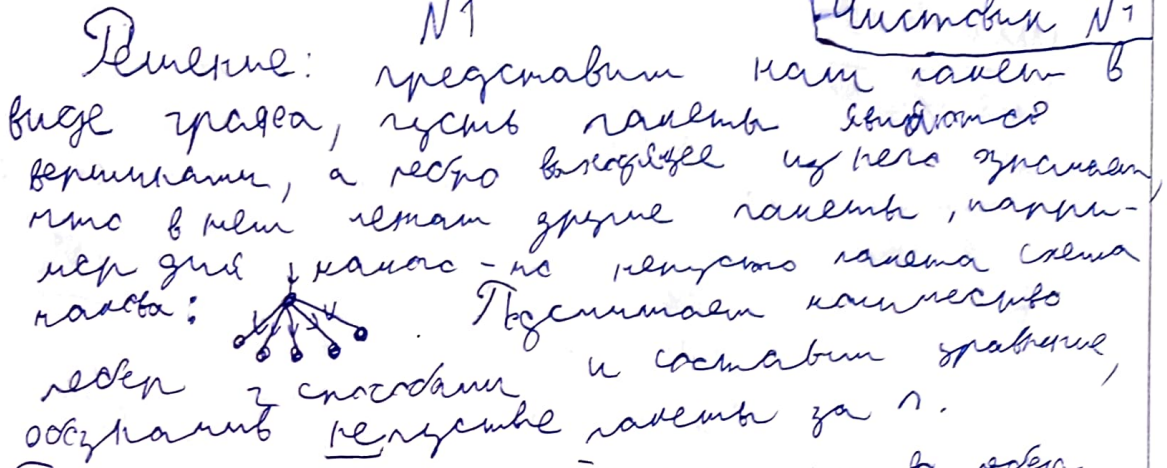 N1
Чистовик N1
Решение: представим наш пакет в
виде графа, пусть пакеты являются
вершинами, а ребро выходящее из него означает,
что в нем лежат другие пакеты, напри-
мер для какого-то непустого пакета схема
такова: . Подсчитаем количество
ребер 2 способами и составим уравнение,
обозначив непустые пакеты за n.